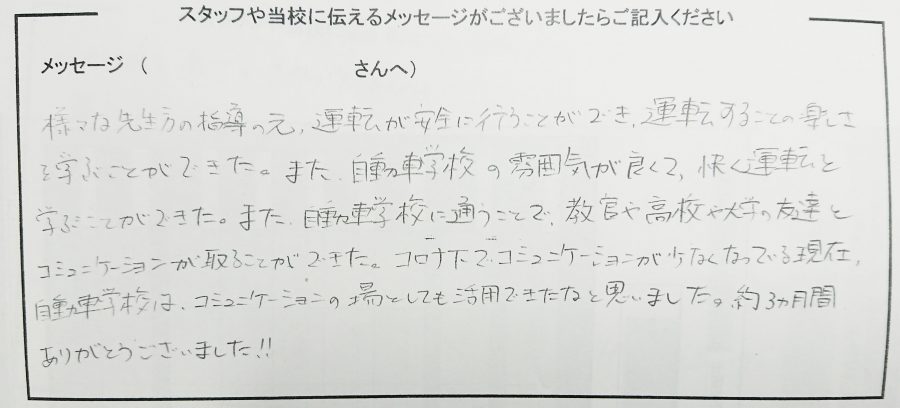 スタッフや当校に伝えるメッセージがございましたらご記入ください
メッセージ（　　　　　　　　　　さんへ）
様々な先生方の指導の元、運転が安全に行うことができ、運転することの楽しさ
を学ぶことができた。また、自動車学校の雰囲気が良くて、快く運転を
学ぶことができた。また、自動車学校に通うことで、教官や高校や大学の友達と
コミュニケーションが取ることができた。コロナ下でコミュニケーションが少なくなっている現在、
自動車学校は、コミュニケーションの場としても活用できたなと思いました。約3ヵ月間
ありがとうございました!!